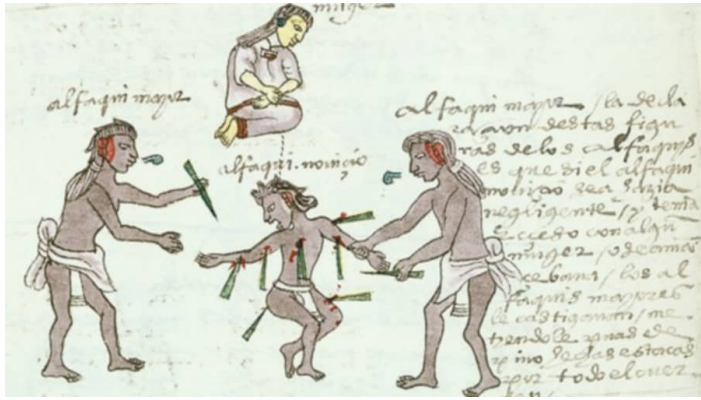 muger
alfaqui mayor
alfaqui.noviçio
alfaqui mayor / la decla
raçion destas figu
ras de los alfaquis
es que si el alfaqui
noviçio
negligente / y tenia
eceso con algun
muger /
los al
faquis mayores
le castigavan / me
tiendole puas de
pino hechas estacas
por todo el cuer